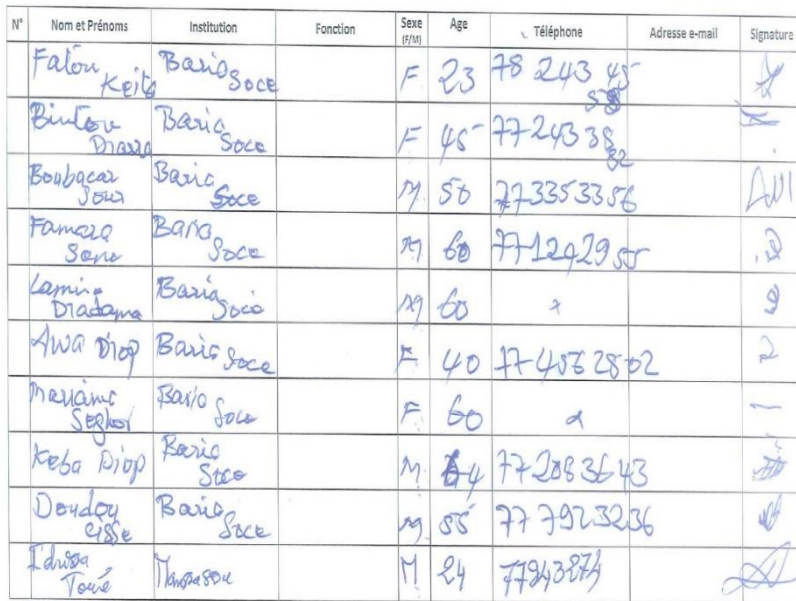 N° Nom et Prénoms Institution Fonction Sexe (F/M) Age Téléphone Adresse e-mail Signature
Fatou Keita Baria Soce F 23 78 243 45
Bintou Diarra Baria Soce F 45 77 243 38 82
Boubacar Baria Soce M 50 77 335 33 56
Famara Sane Baria Soce M 60 77 124 29 55
Lamine Diadama Baria Soce M 60 x
Awa Diop Baria Soce F 40 77 456 28 02
Mariama Seghor Baria Soce F 60 x
Keba Diop Baria Soce M 77 208 36 43
Doudou Cisse Baria Soce M 55 77 792 32 36
Idrissa Touré M 24 77943874